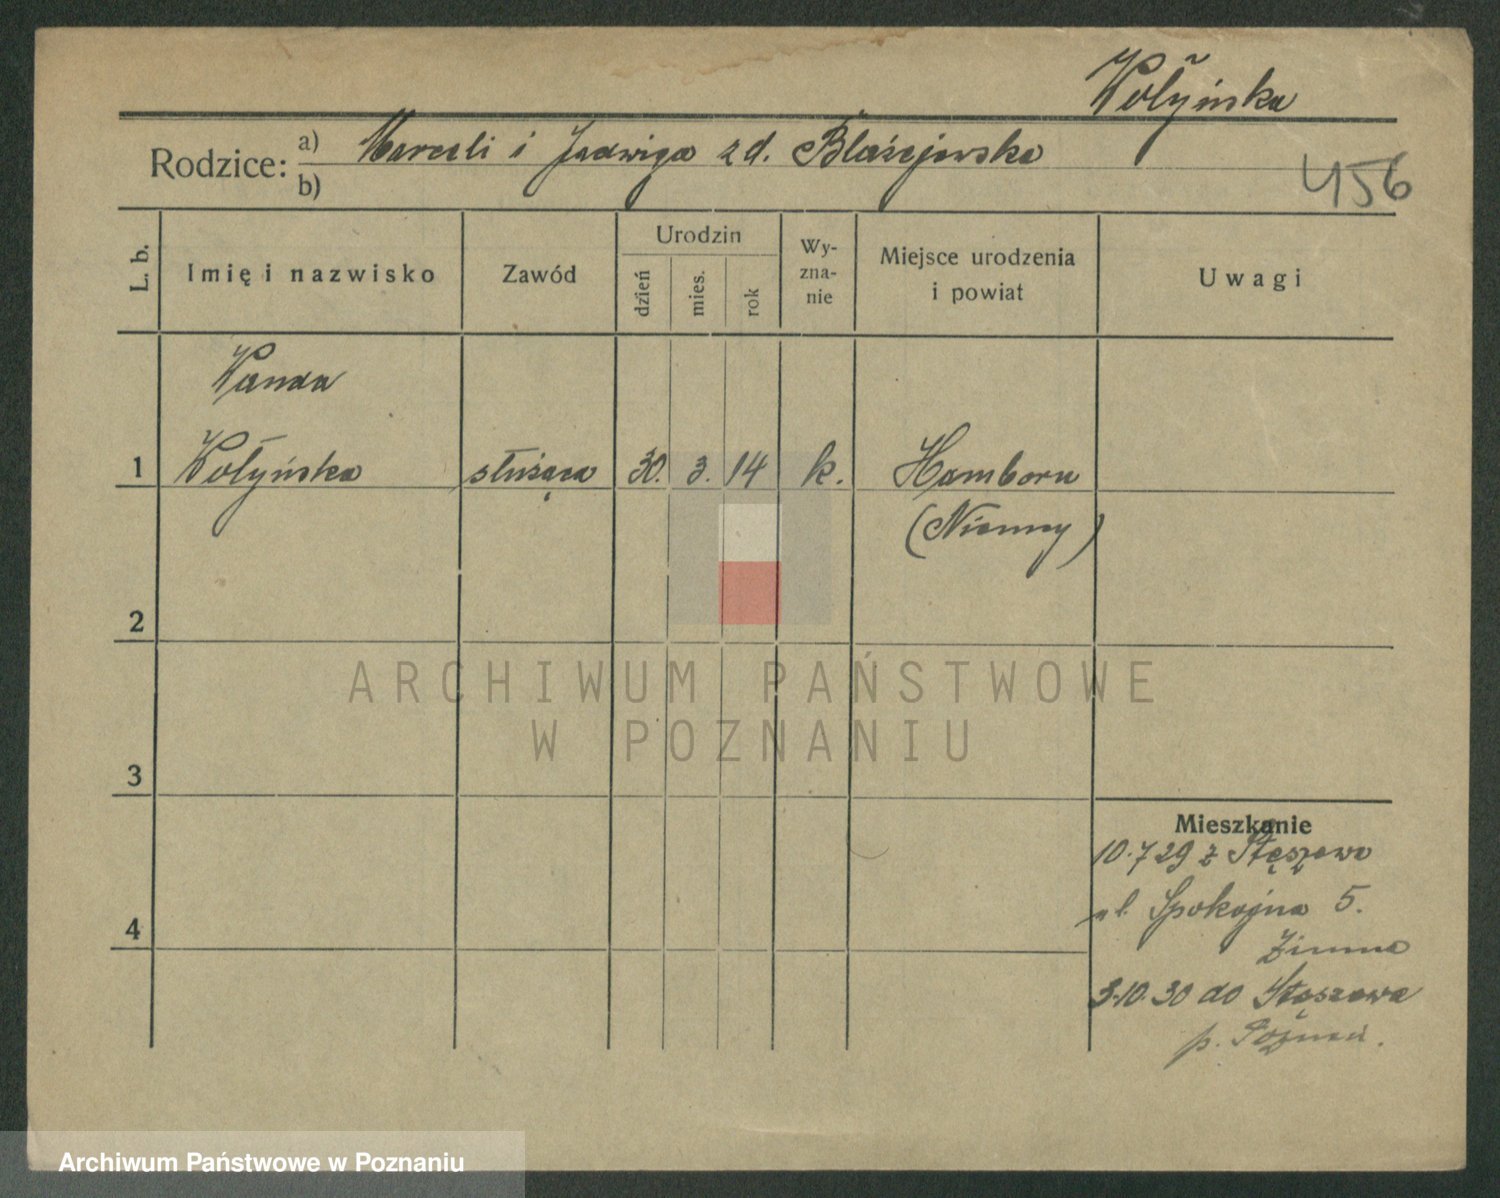 Wołyńska
Rodzice: a) Marceli i Jadwiga z d. Błażejewska
b)
456
L. b.
Imię i nazwisko
Zawód
Urodzin
dzień
mies.
rok
Wy-
zna-
nie
Miejsce urodzenia
i powiat
Uwagi
Wanda
1 Wołyńska służąca 30. 3. 14 k. Hamborn
(Niemcy)
2
3
4
ARCHIWUM PAŃSTWOWE
W POZNANIU
Mieszkanie
10.7 29 z Stęszewa
ul. Spokojna 5.
Zimna
3.10.30 do Stęszewa
p. Poznań.
Archiwum Państwowe w Poznaniu